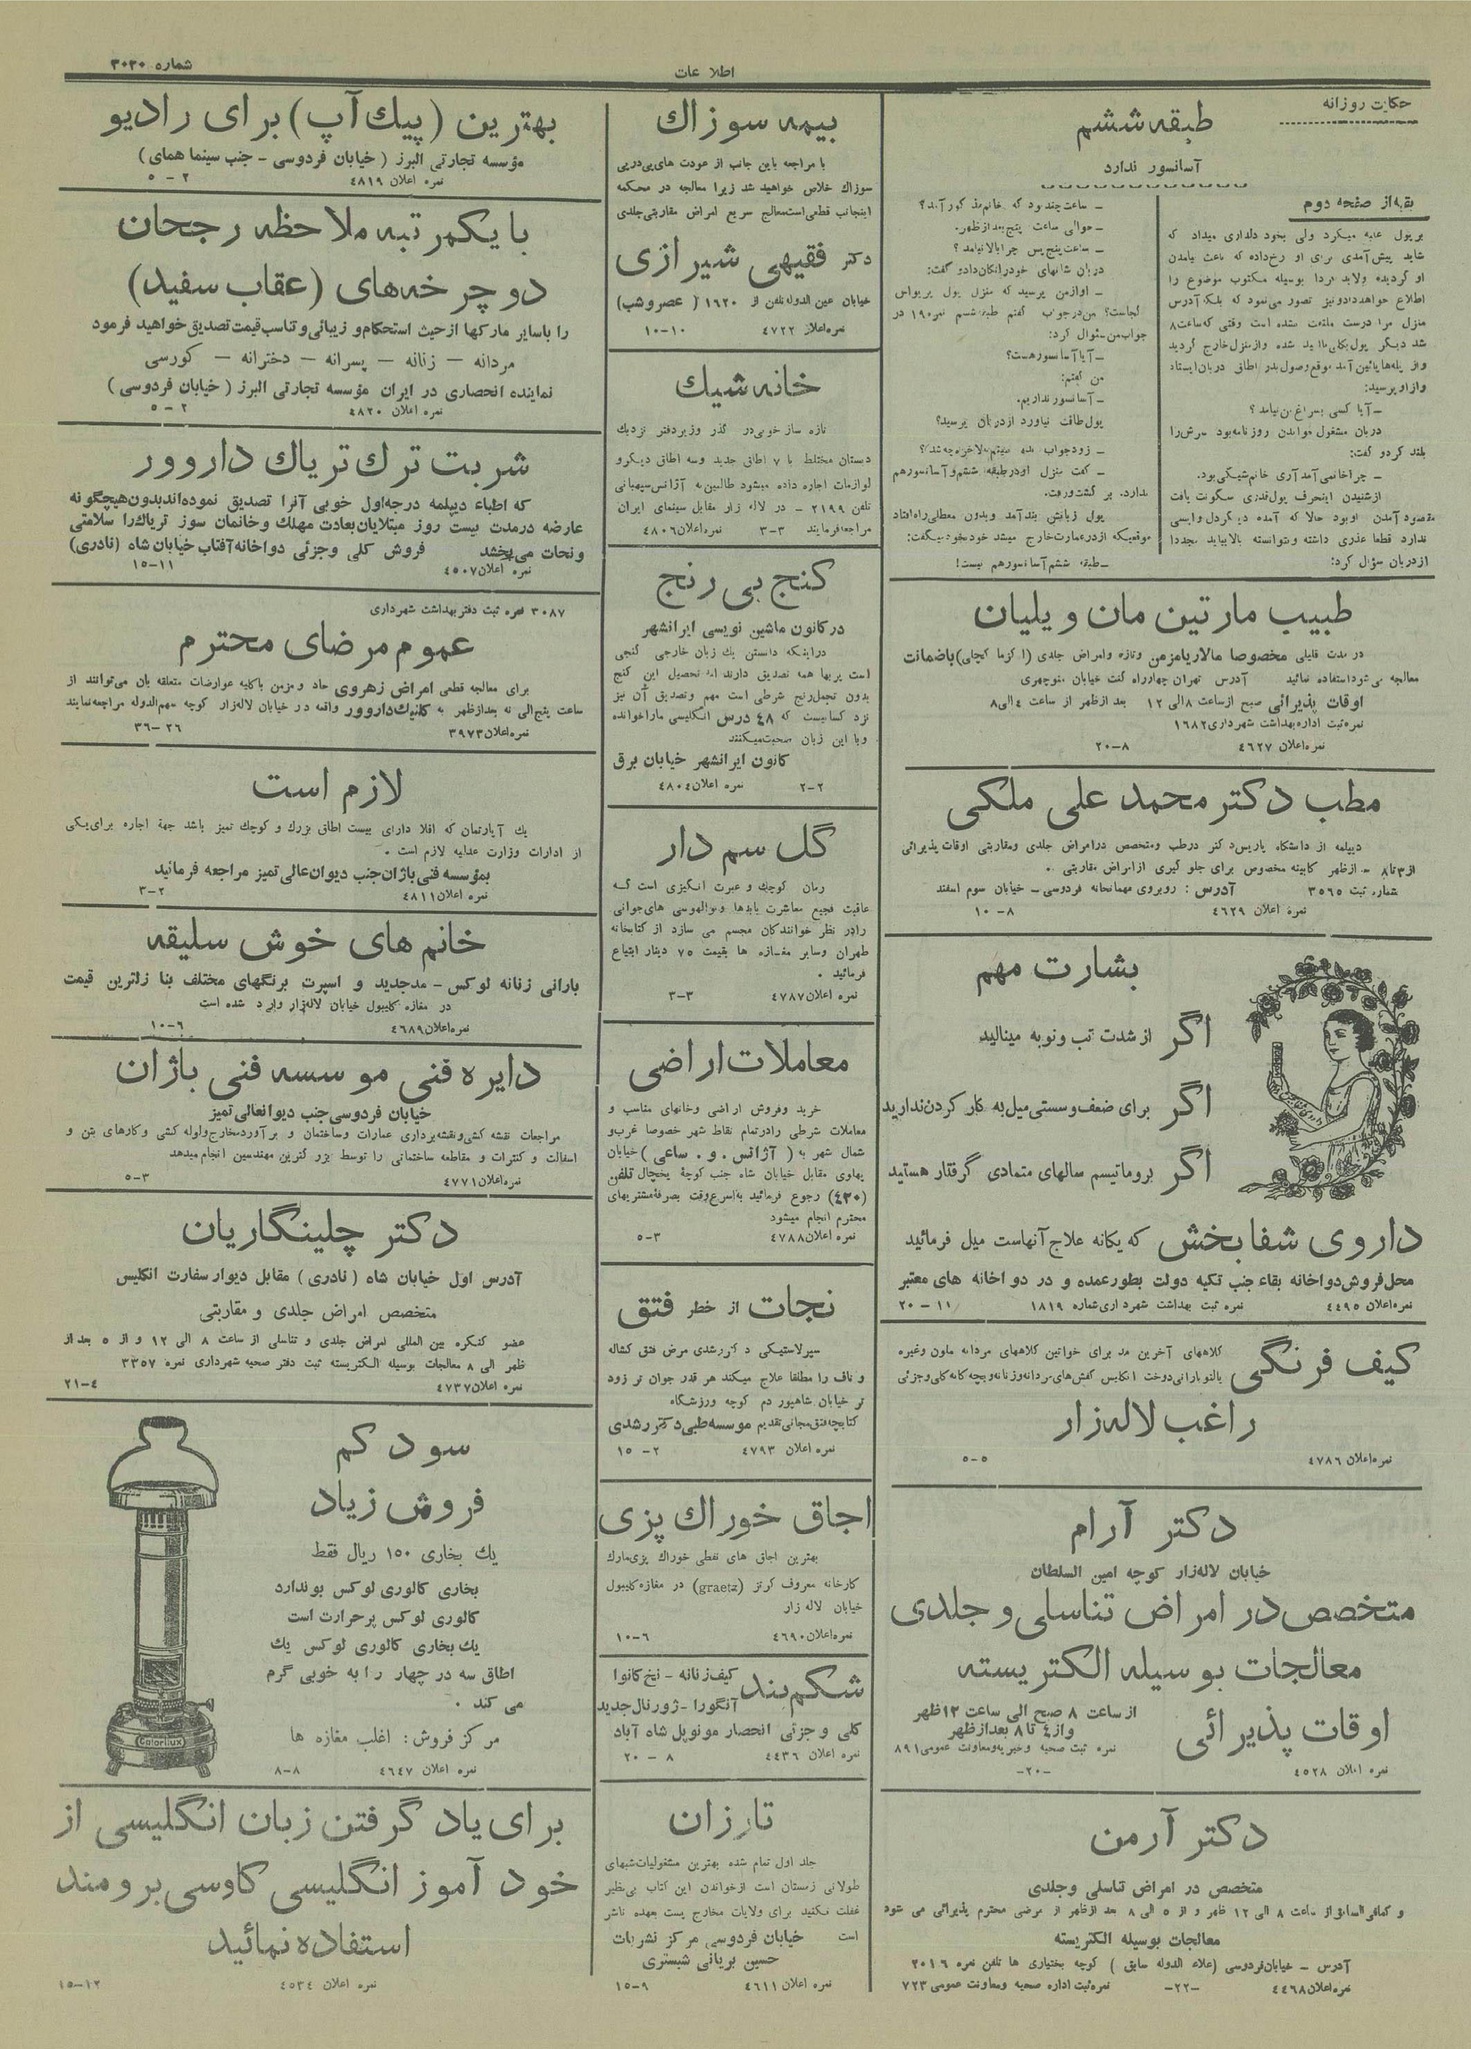 شماره ۳۰۳۰
اطلاعات
حکایت روزانه
طبقه ششم
آسانسور ندارد
بقیه از صفحه دوم
شاید پیش آمدی برای او رخ داده که باعث نیامدن
او گردیده ولابد فردا بوسیله مکتوب موضوع را
وازاو پرسید:
ـ آیا کسی بسراغ من نیامد؟
دربان مشغول خواندن روزنامه بود سرش را
بلند کرد و گفت:
ـ چرا خانمی آمد آری خانم شیکی بود.
ازشنیدن اینحرف پول قدری سکونت یافت
ندارد قطعا عذری داشته ونتوانسته بالا بیاید مجددا
ازدربان سؤال کرد:
ـ ساعت چند بود که خانم مذکور آمد؟
ـ حوالی ساعت پنج بعد از ظهر.
ـ ساعت پنج پس چرا بالا نیامد؟
دربان شانهای خودرا تکان داد و گفت:
ـ او ازمن پرسید که منزل پول بربواس
کجاست؟ من درجواب گفتم طبقه ششم نمره ۱۹ در
جواب من سئوال کرد:
ـ آیا آسانسور هست؟
من گفتم:
ـ آسانسور نداریم.
پول طاقت نیاورد از دربان پرسید؟
ـ گفت منزل او در طبقه ششم و آسانسور هم
ندارد. بر گشت و رفت.
پول زبانش بند آمد و بدون معطلی راه افتاد
موقعیکه از در عمارت خارج میشد خود بخود میگفت:
ـ طبقه ششم آسانسور هم نیست!
طبیب مارتین مان ویلیان
در مدت قلیلی مخصوصا مالاریا مزمن و تازه وامراض جلدی (اکزما کچلی) باضمانت
معالجه می شود استفاده نمائید آدرس تهران چهارراه کنت خیابان منوچهری
اوقات پذیرائی صبح از ساعت ۸ الی ۱۲ بعد از ظهر از ساعت ٤ الی ۸
نمره ثبت اداره بهداشت شهرداری ۱۶۸۲
نمره اعلان ٤۶۲۷ ۸-۲۰
مطب دکتر محمد علی ملکی
دیپلمه از دانشگاه پاریس دکتر درطب و متخصص در امراض جلدی ومقاربتی اوقات پذیرائی
از ۳ تا ۸ بعد ازظهر کابینه مخصوص برای جلو گیری ازامراض مقاربتی .
شماره ثبت ۳۵۶۵ آدرس: روبروی مهمانخانه فردوسی - خیابان سوم اسفند
نمره اعلان ٤۶۲۹ ۸-۱۰
بشارت مهم
اگر از شدت تب و نوبه مینالید
اگر برای ضعف و سستی میل به کار کردن ندارید
اگر بروماتیسم سالهای متمادی گرفتار هستید
داروی شفا بخش که یگانه علاج آنهاست میل فرمائید
محل فروش دواخانه بقاء جنب تکیه دولت بطور عمده و در دواخانه های معتبر
نمره اعلان ٤٤۹۵ نمره ثبت بهداشت شهرداری شماره ۱۸۱۹ ۱۱-۲۰
کیف فرنگی
کلاههای آخرین مد برای خواتین کلاههای مردانه ملون وغیره
پالتو بارانی دوخت انگلیس کفش های مردانه و زنانه و بچه گانه کلی وجزئی
راغب لاله زار
نمره اعلان ٤۷۸۶ ۵-۵
دکتر آرام
خیابان لاله زار کوچه امین السلطان
متخصص در امراض تناسلی و جلدی
معالجات بوسیله الکتریسته
اوقات پذیرائی
از ساعت ۸ صبح الی ساعت ۱۲ ظهر
و از ٤ تا ۸ بعد از ظهر
نمره ثبت صحیه و خیریه و معاونت عمومی ۸۹۱
نمره اعلان ٤۵۲۸ -۲۰-
دکتر آرمن
متخصص در امراض تناسلی وجلدی
و کمافی السابق از ساعت ۸ الی ۱۲ ظهر و از ۵ الی ۸ بعد از ظهر از مرضی محترم پذیرائی می شود
معالجات بوسیله الکتریسته
آدرس - خیابان فردوسی (علاء الدوله سابق) کوچه بختیاری ها تلفن نمره ۲۰۱۶
نمره اعلان ٤٤۶۸ -۲۲- نمره ثبت اداره صحیه ومعاونت عمومی ۷۲۳
بیمه سوزاك
با مراجعه باین جانب از عودت های پی درپی
سوزاك خلاص خواهید شد زیرا معالجه در محکمه
اینجانب قطعی است معالج سریع امراض مقاربتی جلدی
دکتر فقیهی شیرازی
خیابان عین الدوله تلفن از ۱۶۲۰ (عصر وشب)
نمره اعلان ٤۷۲۲ ۱۰-۱۰
خانه شیك
تازه ساز خوبی در گذر وزیر دفتر نزدیك
دبستان مختلط با ۷ اطاق جدید وسه اطاق دیگر و
لوازمات اجاره داده میشود طالبین به آژانس سپهبانی
تلفن ۲۱۹۹ - در لاله زار مقابل سینمای ایران
مراجعه فرمایند ۳-۳ نمره اعلان ٤۸۰۶
کنج بی رنج
در کانون ماشین نویسی ایرانشهر
دراینکه دانستن یك زبان خارجی گنجی
است پربها همه تصدیق دارند اما تحصیل این گنج
بدون تحمل رنج شرطی است مهم وتصدیق آن نیز
نزد کسانیست که ٤۸ درس انگلیسی ما را خوانده
وبا این زبان صحبت میکنند
کانون ایرانشهر خیابان برق
نمره اعلان ٤۸۰٤ ۲-۲
گل سم دار
رمان کوچك و عبرت انگیزی است که
عاقبت فجیع معاشرت بابدها وبوالهوسی های جوانی
رادر نظر خوانندگان مجسم می سازد از کتابخانه
طهران وسایر مغازه ها بقیمت ۷۵ دینار ابتیاع
فرمائید .
نمره اعلان ٤۷۸۷ ۳-۳
معاملات اراضی
خرید وفروش اراضی وخانهای مناسب و
معاملات شرطی رادر تمام نقاط شهر خصوصا غرب و
شمال شهر به (آژانس . و . ساعی) خیابان
پهلوی مقابل خیابان شاه جنب کوچهٔ یخچال تلفن
(٤۳۰) رجوع فرمائید به اسرع وقت بصرفهٔ مشتریهای
محترم انجام میشود
نمره اعلان ٤۷۸۸ ۳-۵
نجات از خطر فتق
سپرلاستیکی دکتر رشدی مرض فتق کشاله
و ناف را مطلقا علاج میکند هر قدر جوان تر زود
تر خیابان شاهپور دم کوچه ورزشگاه
کتابچه فتق مجانی تقدیم موسسه طبی دکتر رشدی
نمره اعلان ٤۷۹۳ ۲-۱۵
اجاق خوراك پزی
بهترین اجاق های نفطی خوراك پزی مارك
کارخانه معروف گرتز (graetz) در مغازه کلیبول
خیابان لاله زار
نمره اعلان ٤۶۹۰ ۶-۱۰
شکم بند
کیف زنانه - نخ کانوا
آنگورا - ژورنال جدید
کلی و جزئی انحصار مونوپل شاه آباد
نمره اعلان ٤٤۳۶ ۸-۲۰
تارزان
جلد اول تمام شده بهترین مشغولیات شبهای
طولانی زمستان است ازخواندن این کتاب بی نظیر
غفلت نکنید برای ولایات مخارج پست بعهده ناشر
است خیابان فردوسی مرکز نشریات
حسین بریانی شبستری
نمره اعلان ٤۶۱۱ ۹-۱۵
بهترین (پیك آپ) برای رادیو
مؤسسه تجارتی البرز (خیابان فردوسی - جنب سینما همای)
نمره اعلان ٤۸۱۹ ۲-۵
با یکمرتبه ملاحظه رجحان
دوچرخه های (عقاب سفید)
را باسایر مارکها از حیث استحکام و زیبائی و تناسب قیمت تصدیق خواهید فرمود
مردانه - زنانه - پسرانه - دخترانه - کورسی
نماینده انحصاری در ایران مؤسسه تجارتی البرز (خیابان فردوسی)
نمره اعلان ٤۸۲۰ ۲-۵
شربت ترك تریاك داروور
که اطباء دیپلمه درجه اول خوبی آنرا تصدیق نموده اند بدون هیچگونه
عارضه درمدت بیست روز مبتلایان بعادت مهلك وخانمان سوز تریاك را سلامتی
ونجات می بخشد فروش کلی وجزئی دواخانه آفتاب خیابان شاه (نادری)
نمره اعلان ٤۵۰۷ ۱۱-۱۵
۳۰۸۷ نمره ثبت دفتر بهداشت شهرداری
عموم مرضای محترم
برای معالجه قطعی امراض زهروی حاد و مزمن باکلیه عوارضات متعلقه بان می توانند از
ساعت پنج الی نه بعدازظهر به کلنیك داروور واقعه در خیابان لاله زار کوچه سهم الدوله مراجعه نمایند
نمره اعلان ۳۹۷۳ ۲۶-۳۶
لازم است
یك آپارتمان که اقلا دارای بیست اطاق بزرك و کوچك تمیز باشد جهة اجاره برای یکی
از ادارات وزارت عدلیه لازم است .
بمؤسسه فنی باژان جنب دیوان عالی تمیز مراجعه فرمائید
نمره اعلان ٤۸۱۱ ۲-۳
خانم های خوش سلیقه
بارانی زنانه لوکس - مد جدید و اسپرت برنگهای مختلف بنا زلترین قیمت
در مغازه کلیبول خیابان لاله زار وارد شده است
نمره اعلان ٤۶۸۹ ۶-۱۰
دایره فنی موسسه فنی باژان
خیابان فردوسی جنب دیوانعالی تمیز
مراجعات نقشه کشی و نقشه برداری عمارات وساختمان و برآورد مخارج و لوله کشی وکارهای بتن و
اسفالت و کنترات و مقاطعه ساختمانی را توسط بزرگترین مهندسین انجام میدهد
نمره اعلان ٤۷۷۱ ۳-۵
دکتر چلینگاریان
آدرس اول خیابان شاه (نادری) مقابل دیوار سفارت انگلیس
متخصص امراض جلدی و مقاربتی
عضو کنگره بین المللی امراض جلدی و تناسلی از ساعت ۸ الی ۱۲ و از ۵ بعد از
ظهر الی ۸ معالجات بوسیله الکتریسته ثبت دفتر صحیه شهرداری نمره ۳۳۵۷
نمره اعلان ٤۷۳۷ ٤-۲۱
سود کم
فروش زیاد
یك بخاری ۱۵۰ ریال فقط
بخاری کالوری لوکس بو ندارد
کالوری لوکس پرحرارت است
یك بخاری کالوری لوکس یك
اطاق سه در چهار را به خوبی گرم
می کند .
مرکز فروش: اغلب مغازه ها
نمره اعلان ٤۶٤۷ ۸-۸
Calorilux
برای یاد گرفتن زبان انگلیسی از
خود آموز انگلیسی کاوسی برومند
استفاده نمائید
نمره اعلان ٤۵۳٤ ۱۲-۱۵